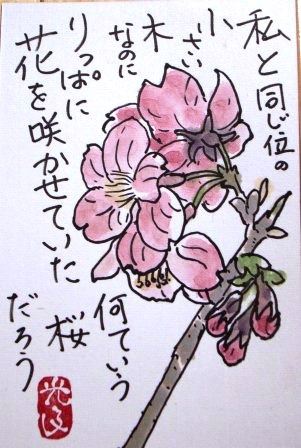 私と同じ位の
小さい
木
なのに
りっぱに
花を咲かせていた
何ていう
桜
だろう